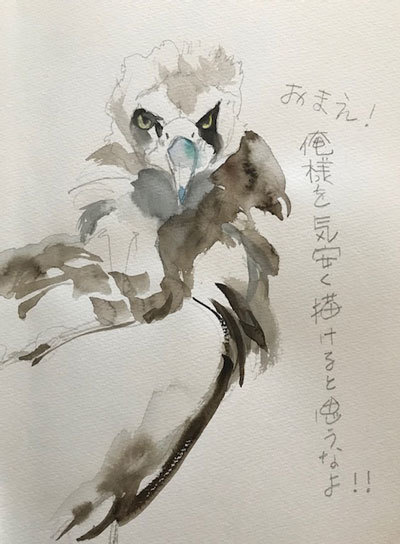 おまえ!
俺様を気安く描けると思うなよ!!